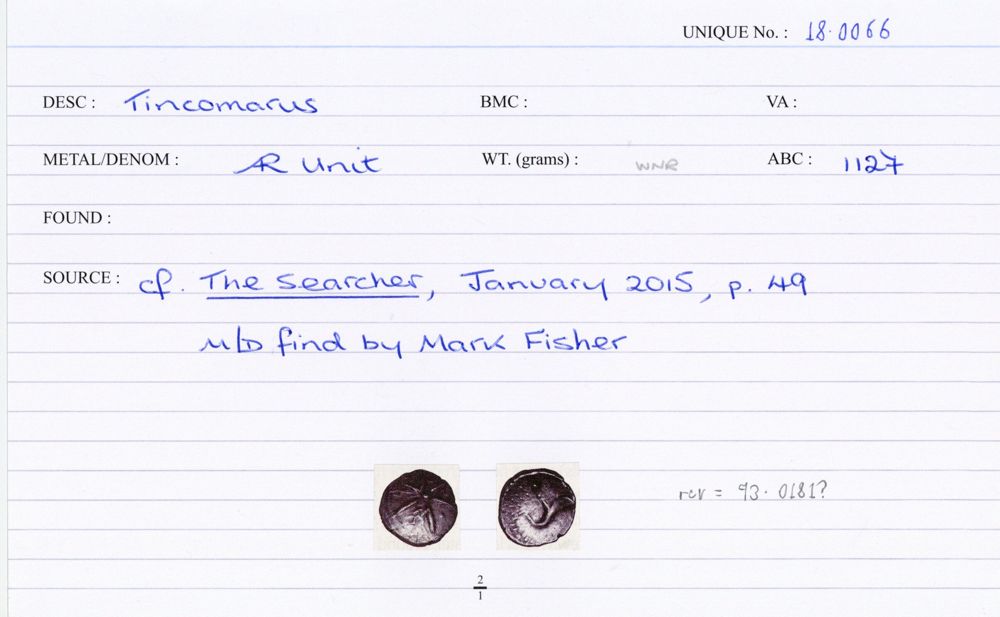 UNIQUE No. : 18.0066
DESC : Tincomarus BMC : VA :
METAL/DENOM : AR Unit WT. (grams) : WNR ABC : 1127
FOUND :
SOURCE : cf. The Searcher, January 2015, p. 49
M/D find by Mark Fisher
rev = 93.0181?
2
1